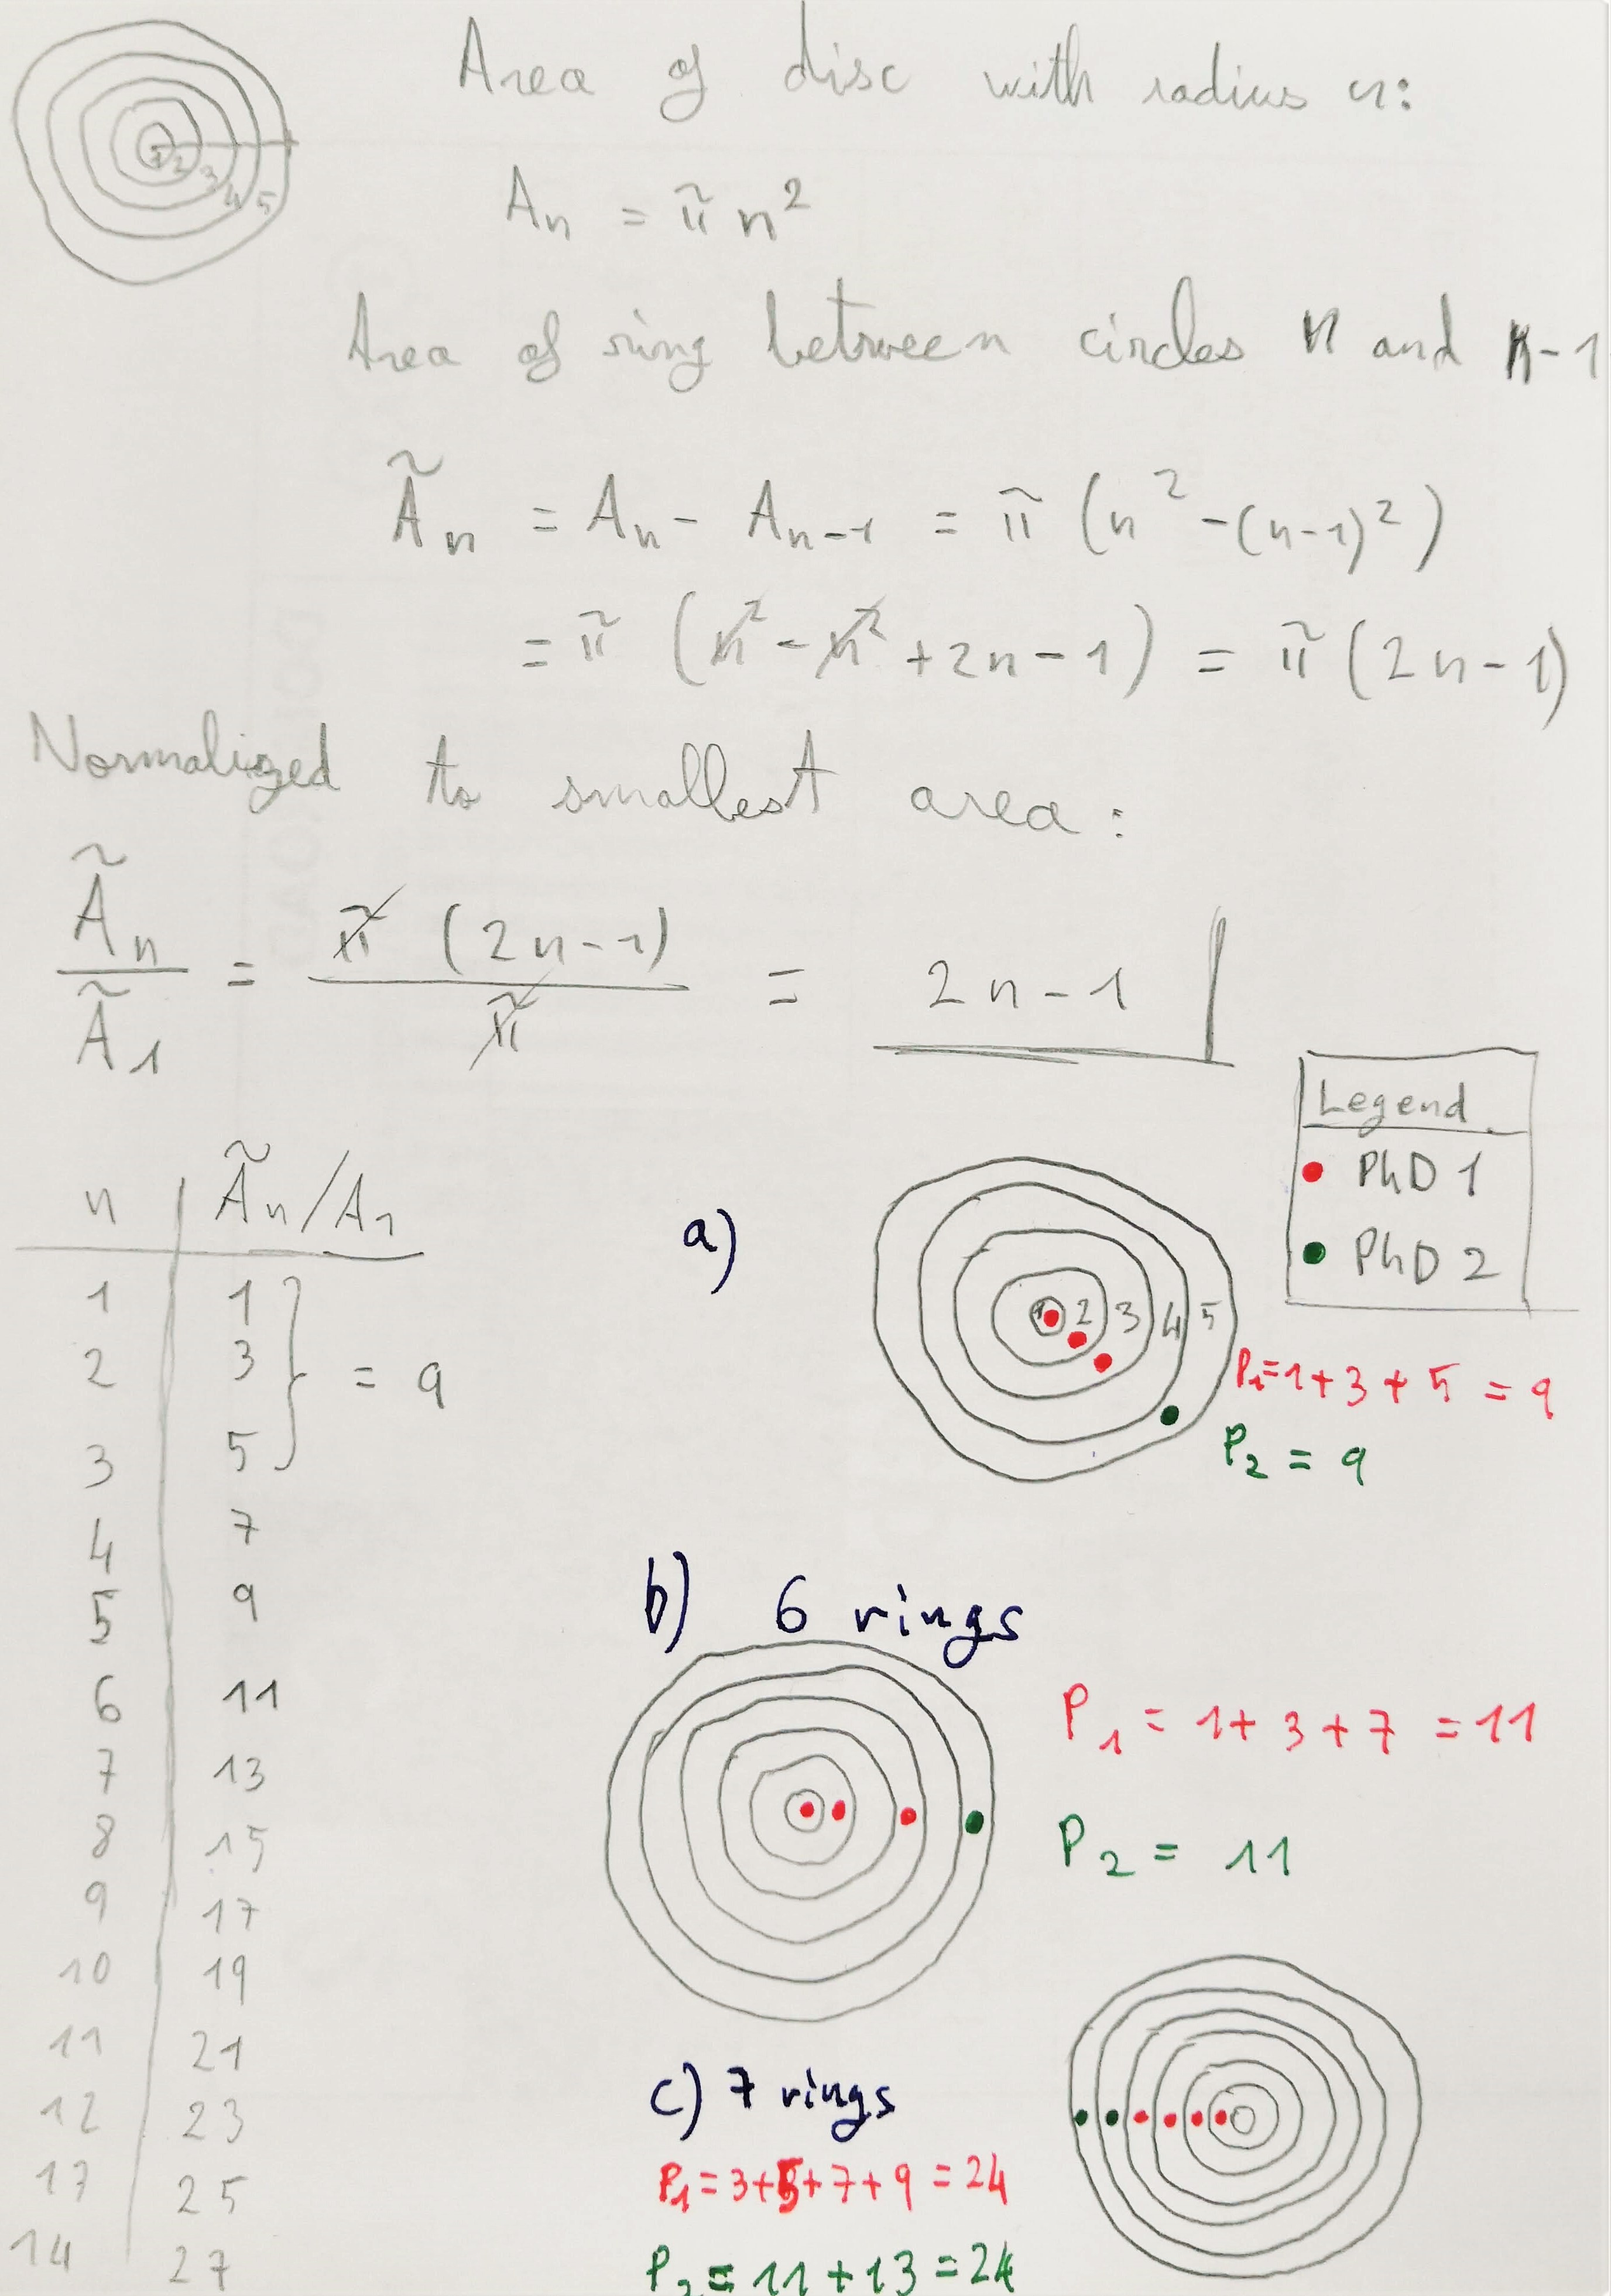 1 2 3 4 5
Area of disc with radius n:
Aₙ = π n²
Area of ring between circles n and n-1
Ãₙ = Aₙ - Aₙ₋₁ = π (n² - (n-1)²)
= π (n² - n² + 2n - 1) = π (2n - 1)
Normalized to smallest area:
Ãₙ / Ã₁ = π (2n-1) / π = 2n-1
Legend
PhD 1
PhD 2
n Ãₙ/A₁
1 1
2 3 = 9
3 5
4 7
5 9
6 11
7 13
8 15
9 17
10 19
11 21
12 23
17 25
14 27
a)
1 2 3 4 5
P₁=1+3+5=9
P₂=9
b) 6 rings
P₁ = 1+3+7 =11
P₂ = 11
c) 7 rings
P₁=3+5+7+9=24
P₂=11+13=24